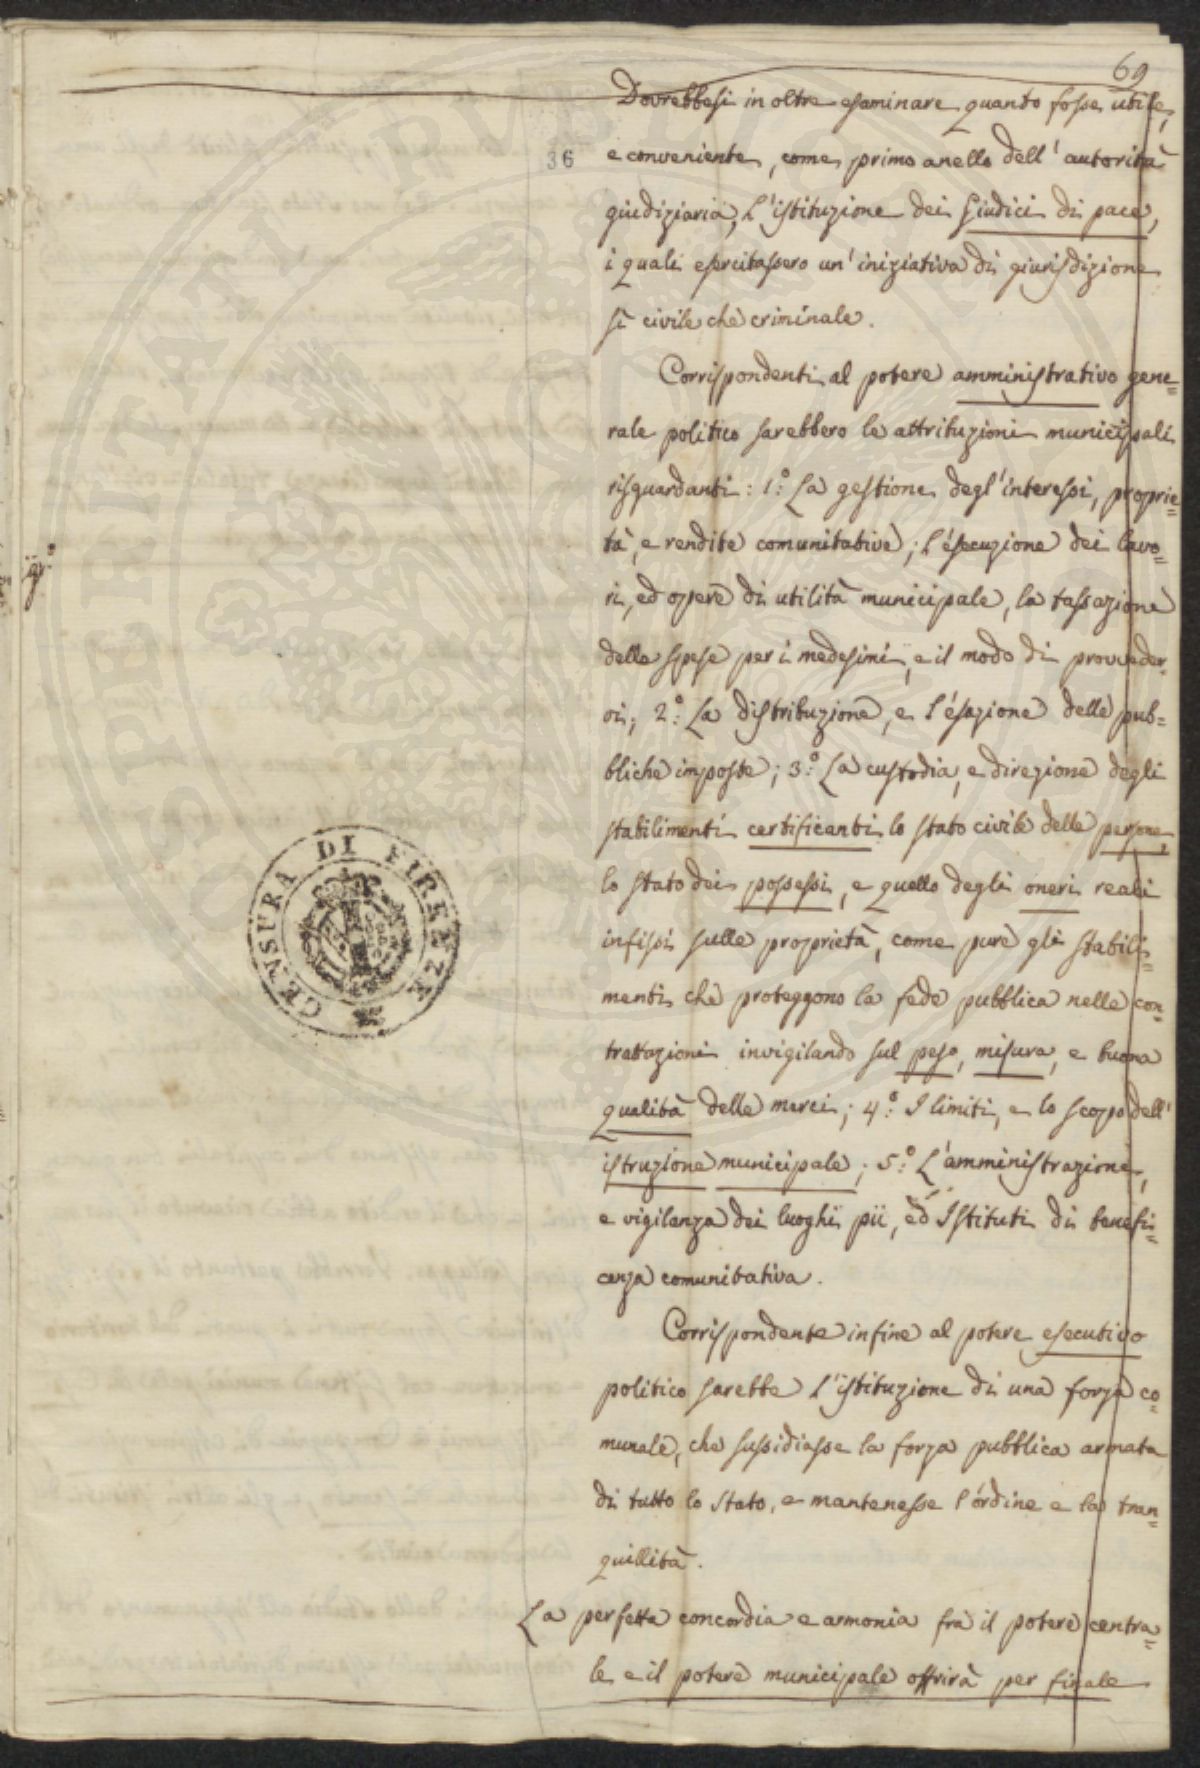 69
Dovrebbesi in oltre esaminare quanto fosse utile,
36
e conveniente, come primo anello dell' autorità
giudiziaria, l'istituzione dei Giudici di pace,
i quali esercitassero un' iniziativa di giurisdizione
sì civile che criminale.
Corrispondenti al potere amministrativo gene=
rale politico sarebbero le attribuzioni municipali
risguardanti: 1.° La gestione degl' interessi, proprie=
tà, e rendite comunitative; l'esecuzione dei lavo=
ri, ed opere di utilità municipale, la tassazione
delle spese per i medesimi, e il modo di provveder=
vi; 2.° La distribuzione, e l'esazione delle pub=
bliche imposte; 3.° La custodia, e direzione degli
stabilimenti certificanti lo stato civile delle persone,
lo stato dei possessi, e quello degli oneri reali
infissi sulle proprietà, come pure gli stabili=
menti che proteggono la fede pubblica nelle con=
trattazioni invigilando sul peso, misura, e buona
qualità delle merci; 4.° I limiti, e lo scopo dell'
istruzione municipale; 5.° L'amministrazione,
e vigilanza dei luoghi pii, ed Istituti di benefi=
cenza comunitativa.
Corrispondente infine al potere esecutivo
politico sarebbe l'istituzione di una forza co=
munale, che sussidiasse la forza pubblica armata
di tutto lo Stato, e mantenesse l'ordine e la tran=
quillità.
La perfetta concordia e armonia fra il potere centra=
le e il potere municipale offrirà per finale
CENSURA DI FIRENZE